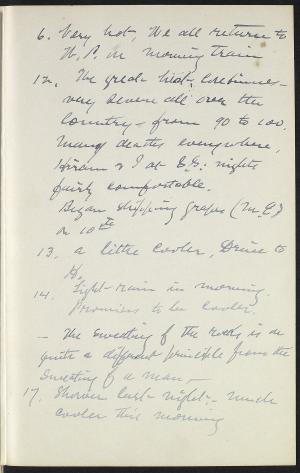 6. Very hot, We all return to
W. P. on morning train
12. The great heat continues -
very severe all over the
country - from 90 to 100.
Many deaths everywhere,
Hiram & I at S.S: nights
fairly comfortable.
Began shipping grapes (M.E.)
on 10th
13. a little cooler, Drive to
H.
14. Light rain in morning.
Promises to be cooler.
- The sweating of the rocks is on
quite a different principle from the
sweating of a man -
17. Shower last night - much
cooler this morning